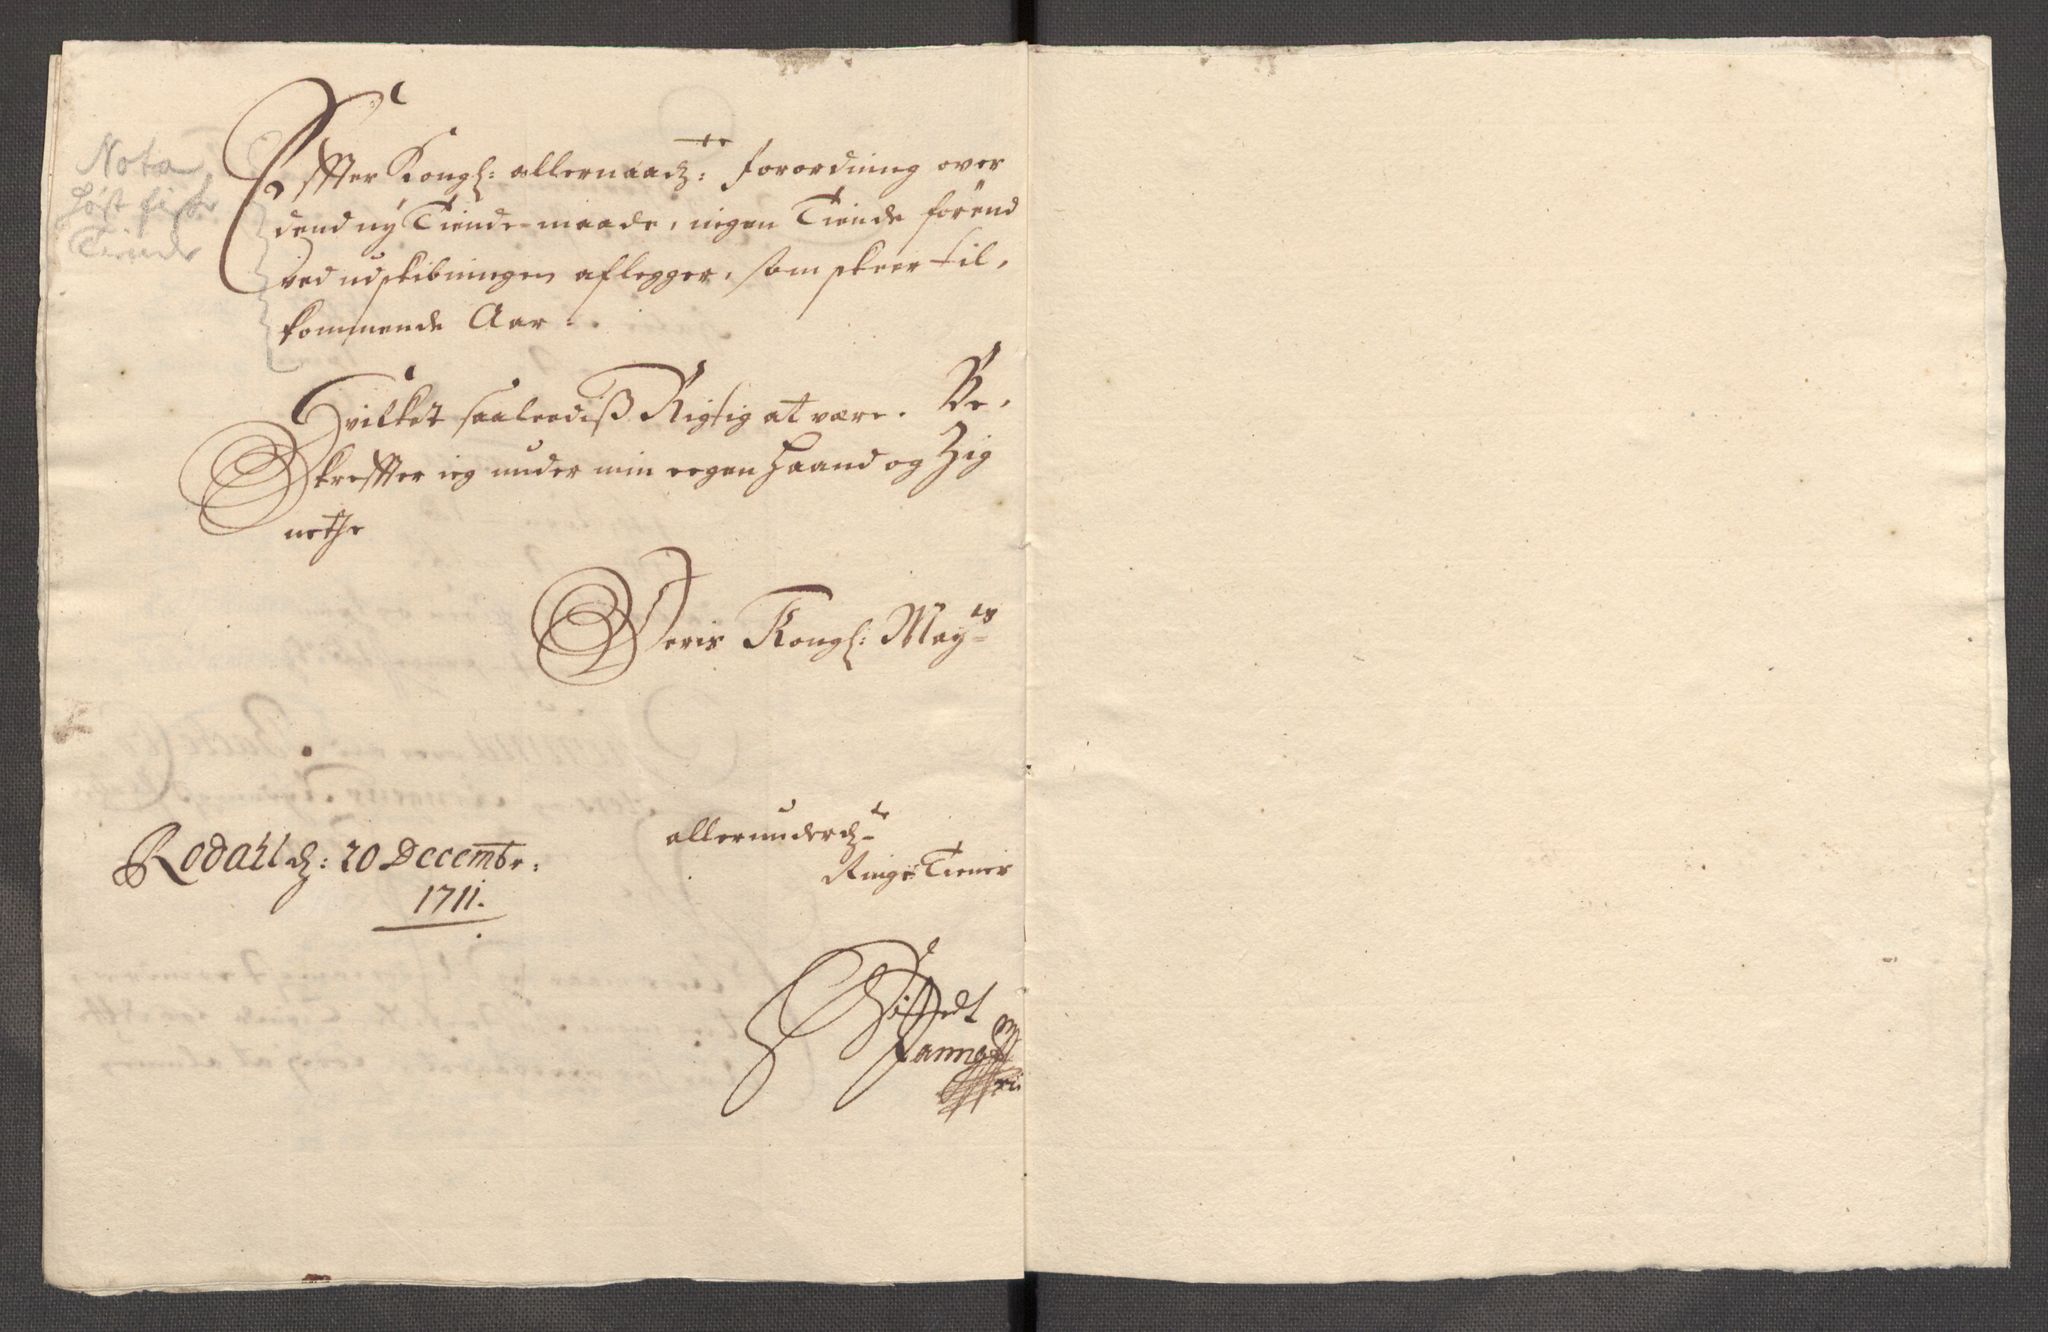 Nota
høst fiske
Tiende
Effter Kongl: allernaadste: forordning over
dend ny Tiende-maade, ingen Tiende førend
ved udskibningen aflegger, som skeer til,
kommende Aar:
Hvilket saaleediß Rigtig at være. Be,
krefffter ieg under min eegen Haand og Zig
nethe
Deris Kongl: Mayts
allerunderdste
Ringe Tiener
Rødøll d: 20 Decembr:
1711.